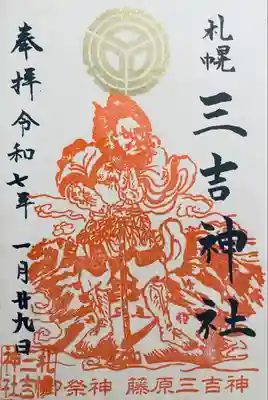 札幌
三吉神社
奉拝 令和七年 一月廿九日
札幌
三吉
神社
御祭神 藤原三吉神